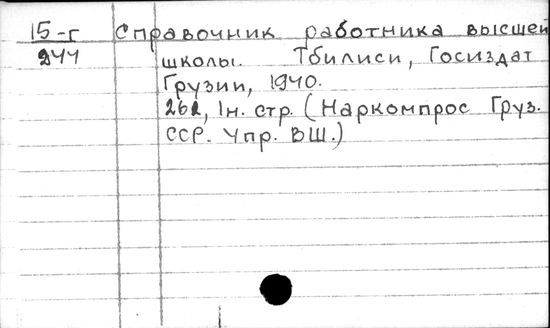 15-г Справочник работника высшей
244 школы. Тбилиси, Госиздат
Грузии, 1940.
262, 1н. стр. (Наркомпрос Груз.
ССР. Упр. ВШ.)